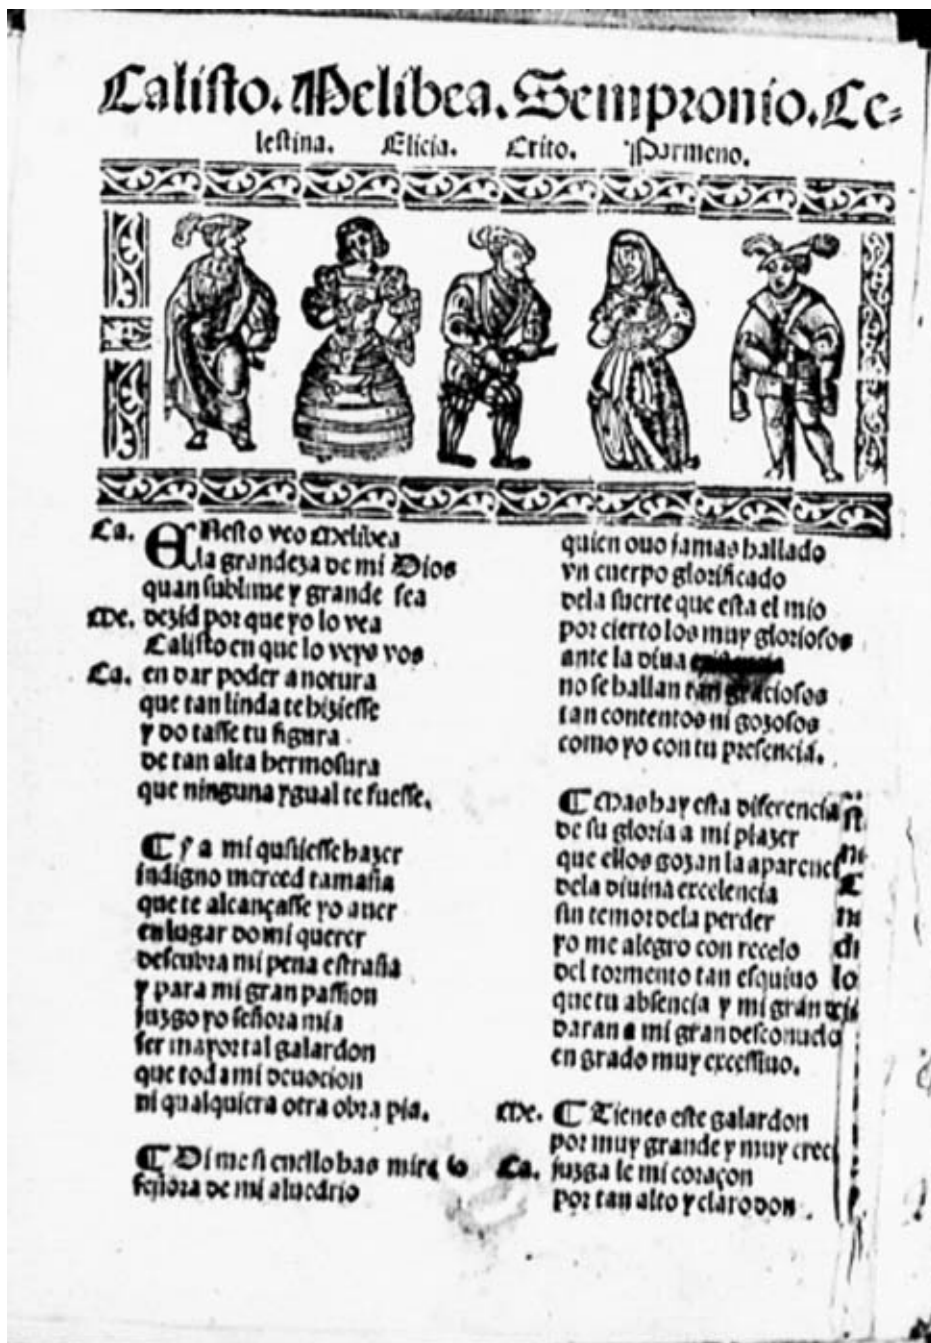 Calisto. Melibea. Sempronio. Ce-
lestina. Elicia. Crito. Parmeno.
Ca. EN esto veo Melibea
la grandeza de mi Dios
quan sublime y grande sea
Me. dezid por que yo lo vea
Calisto en que lo veys vos
Ca. en dar poder a notura
que tan linda te hiziesse
y dotasse tu figura
de tan alta hermosura
que ninguna ygual te fuesse.
¶ Y a mi quisiesse hazer
indigno merced tamaña
que te alcançasse yo auer
en lugar do mi querer
descubra mi pena estraña
y para mi gran passion
juzgo yo señora mia
ser mayor tal galardon
que toda mi deuocion
ni qualquiera otra obra pia.
¶ Di me si en ello has
señora de mi aluedrio
quien ouo jamas hallado
vn cuerpo glorificado
dela suerte que esta el mio
por cierto los muy gloriosos
ante la diua
no se hallan tan graciosos
tan contentos ni gozosos
como yo con tu presencia.
¶ Mas hay esta diferencia
de su gloria a mi plazer
que ellos gozan la
dela diuina excelencia
sin temor dela perder
yo me alegro con recelo
del tormento tan esquiuo
que tu absencia y mi gran
daran a mi gran desconuelo
en grado muy excessiuo.
Me. ¶ Tienes este galardon
por muy grande y muy
Ca. juzga le mi coraçon
por tan alto y claro don